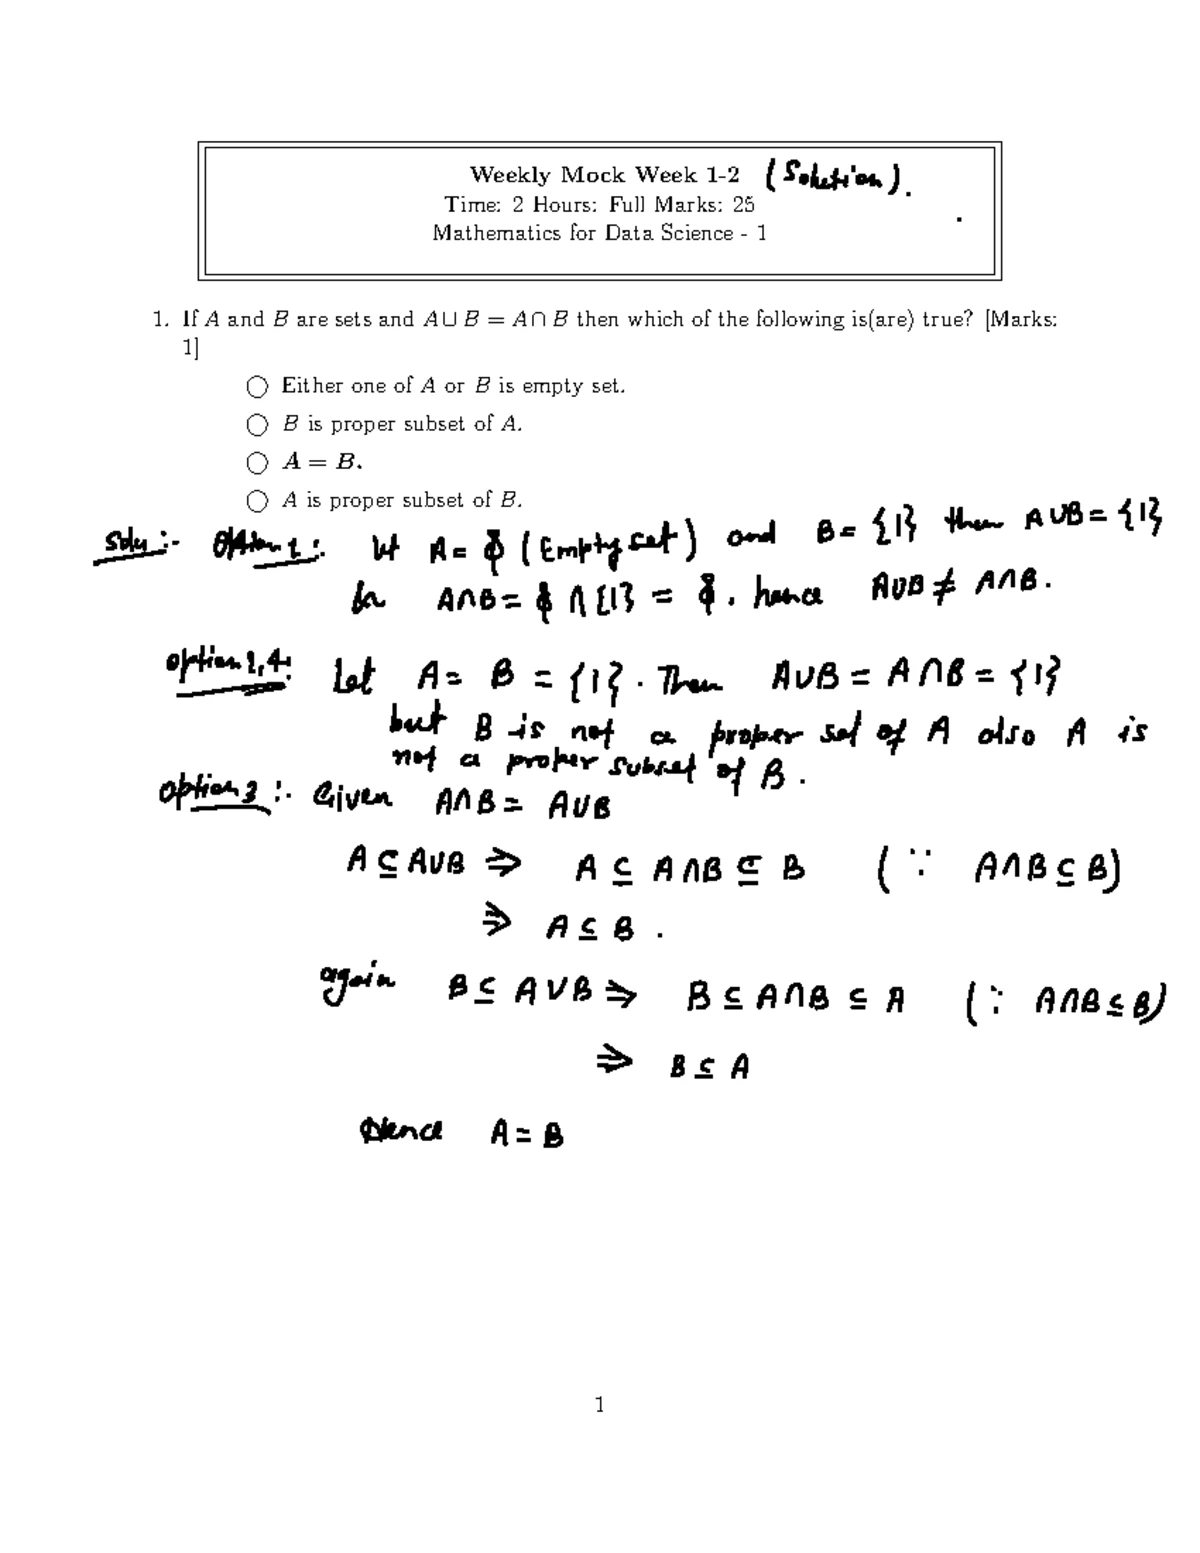 Weekly Mock Week 1-2 (Solution).
Time: 2 Hours: Full Marks: 25
Mathematics for Data Science - 1
1. If A and B are sets and A∪B = A∩B then which of the following is(are) true? [Marks:
1]
○ Either one of A or B is empty set.
○ B is proper subset of A.
○ A = B.
○ A is proper subset of B.
Soln :- Option 1 : let A = ϕ (Empty set) and B = {1} then A∪B = {1}
A∩B = ϕ ∩ {1} = ϕ. hence A∪B ≠ A∩B.
Option 2,4: Let A = B = {1}. Then A∪B = A∩B = {1}
but B is not a proper set of A also A is
not a proper subset of B.
Option 3 :- Given A∩B = A∪B
A ⊆ A∪B ⇒ A ⊆ A∩B ⊆ B (∵ A∩B ⊆ B)
⇒ A ⊆ B.
again B ⊆ A∪B ⇒ B ⊆ A∩B ⊆ A (∵ A∩B ⊆ B)
⇒ B ⊆ A
Hence A = B
1